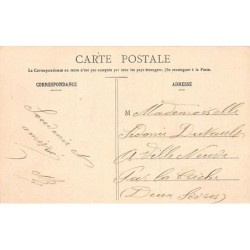 CARTE POSTALE
La Correspondance au recto n'est pas acceptée par tous les pays étrangers. (Se renseigner à la Poste).
CORRESPONDANCE
ADRESSE
Souvenir
M Mademoiselle
à Ville Neuve
Par la Crèche
Deux Sèvres